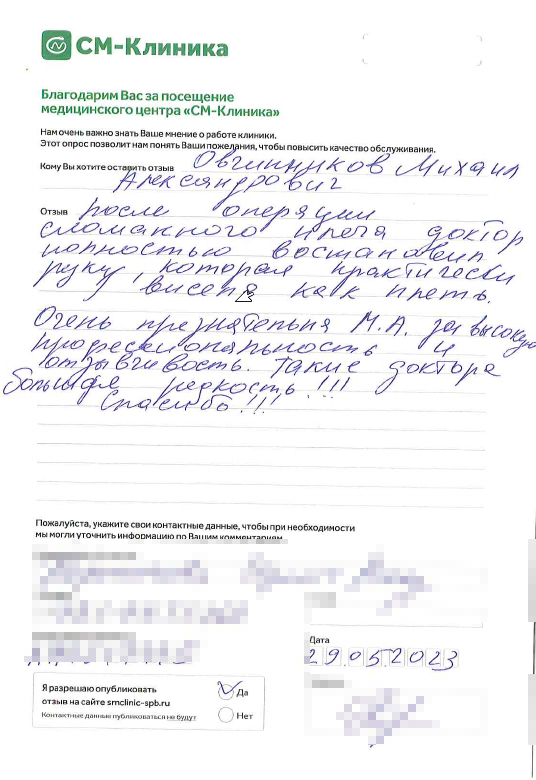 СМ-Клиника
Благодарим Вас за посещение
медицинского центра «СМ-Клиника»
Нам очень важно знать Ваше мнение о работе клиники.
Этот опрос позволит нам понять Ваши пожелания, чтобы повысить качество обслуживания.
Кому Вы хотите оставить отзыв Овчинников Михаил
Александрович
Отзыв после операции
сломанного плеча доктор
полностью востановил
руку, которая практически
висела как плеть.
Очень признательна М.А. за высокую
професиональность и
отзывчивость. Такие доктора
большая редкость!!!
Спасибо!!!
Пожалуйста, укажите свои контактные данные, чтобы при необходимости
мы могли уточнить информацию по Вашим комментариям
Дата
29.05.2023
Я разрешаю опубликовать
отзыв на сайте smclinic-spb.ru
Контактные данные публиковаться не будут
Да
Нет